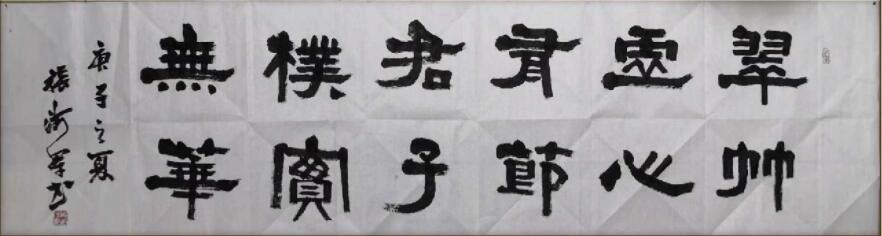 翠竹
虛心
有節
君子
樸實
無華
庚子之夏
張軍书